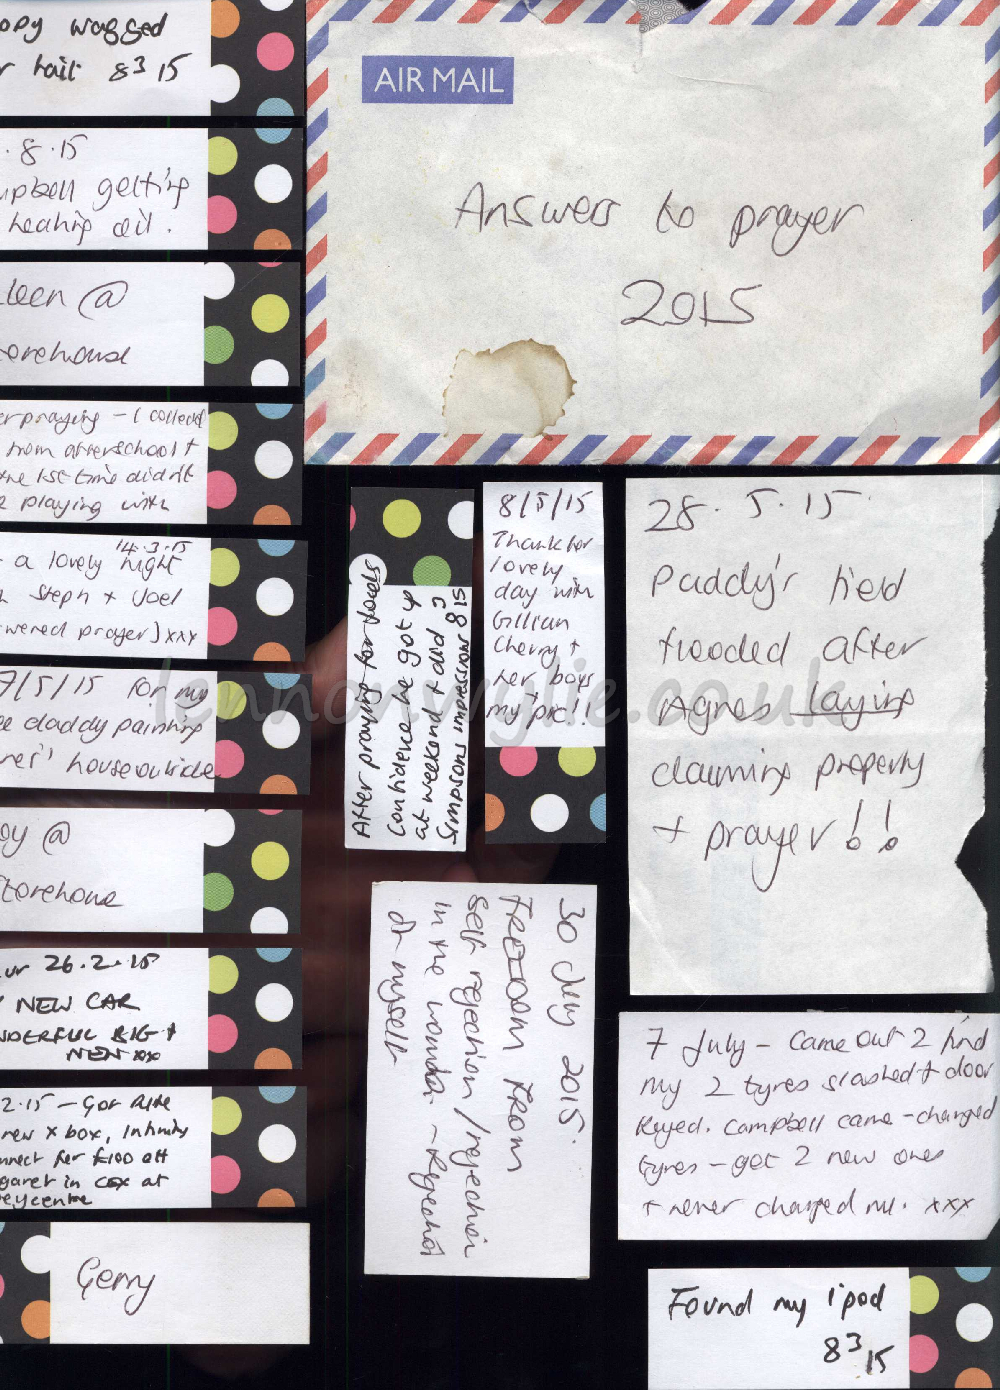 opy wagged
r tail 8 3 15
. 8 . 15
mpbell getting
healing oil.
leen @
torehouse
er praying - I collected
from afterschool +
the 1st time didn't
playing with
14.3.15
a lovely night
Steph + Joel
wered prayer) xxx
7/5/15 for my
daddy painting
house outside
oy @
torehouse
ur 26.2.15
NEW CAR
NDERFUL BIG +
NEW xxx
2.15 - Got
new x box, Infinity
nnect for £100 off
garet in cex at
eycentre
Gerry
AIR MAIL
Answers to prayer
2015
After praying for
confidence he got up
at weekend + did 3
Simpsons impressions 8 15
8/5/15
Thanks for
lovely
day with
Gillian
Cherry +
her boys
my pic!!
28.5.15
Paddy's field
flooded after
Agnes laying
claiming property
+ prayer!!
30 July 2015.
FREEDOM FROM
self rejection / rejection
in the womb - rejection
of myself
7 July - Came out 2 find
my 2 tyres slashed + door
keyed. Campbell came - changed
tyres - get 2 new ones
+ never charged me. xxx
Found my ipod
8 3 15
lennonwylie.co.uk